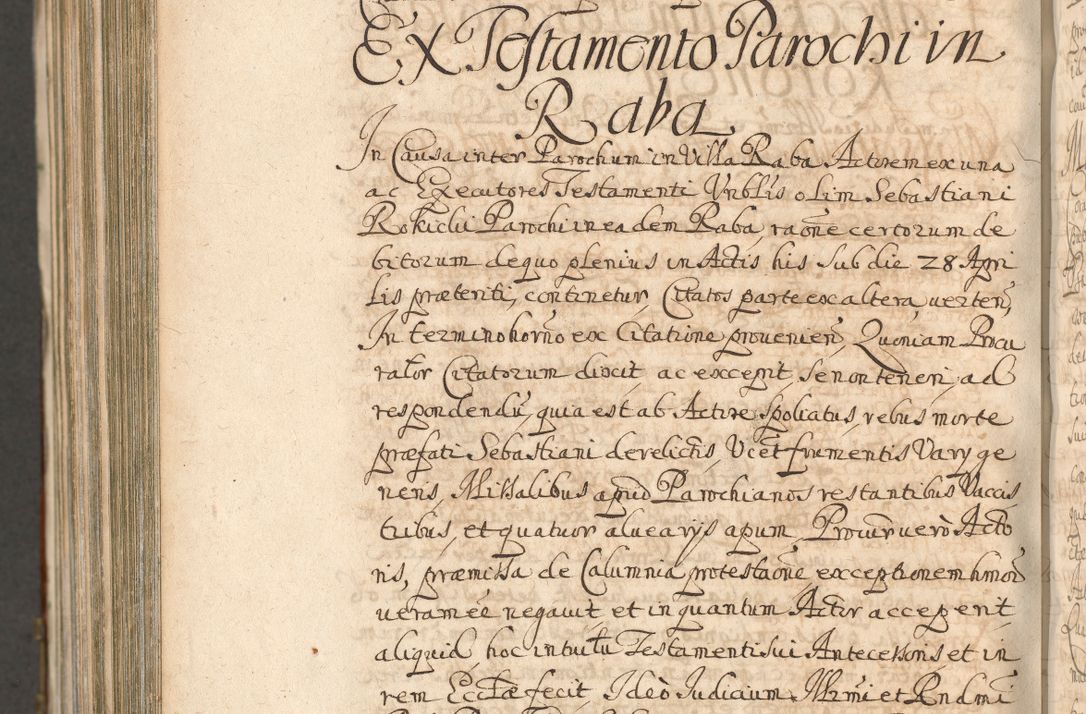 Ex Testamento Parochi in
Raba
In Causa inter Parochum in Villa Raba Actorem ex una
ac Executores Testamenti Vnblis olim Sebastiani
Rokicki Parochi in eadem Raba, raone certorum de
bitorum de quo plenius in Actis his sub die 28 Apri
lis præteriti, continetur, Citatos parte ex altera verten,
In termino horno ex Citatione provenien, Quoniam Procu
rator Citatorum dixit, ac excepit, se non teneri, ad
respondendu, quia est ab Actore spoliatus, rebus morte
præfati Sebastiani derelictis, Vcet frumentis Varij ge
neris, Missalibus apud Parochianos restantibus Vaccis
tribus, et quatuor aluearijs apum, Procur vero Acto
ris, præmissa de Calumnia protestaone exceptionem hmoi
veram ee negavit, et in quantum Actor acceperit
aliquid, hoc intuitu Testamenti sui Antecessoris, et in
rem Ecclæ fecit, Ideo Iudicium Illrmi et Rndmi